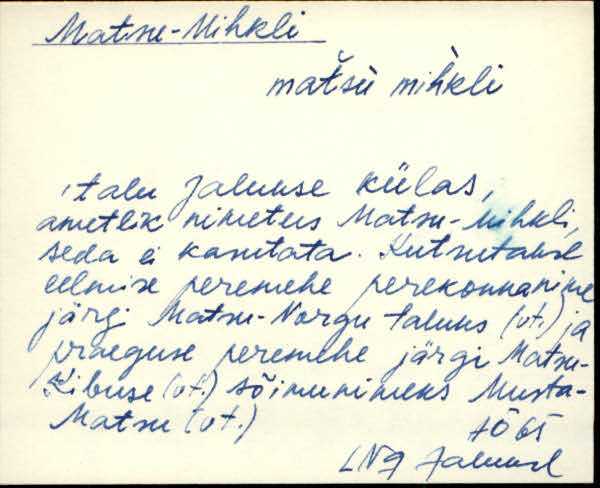 Matsu-Mihkli
matsù mìhkli
talu Jaluse külas,
ametlik nimetus Matsu-Mihkli,
seda ei kasutata. Kutsutakse
eelmise peremehe perekonnanime
järgi Matsu-Norgu taluks (vt.) ja
praeguse peremehe järgi Matsu-
Kibuse (vt.) sõimunimeks Musta-
Matsu (vt.)
LNg